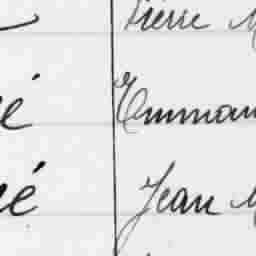 Pierre M
é Emman
é Jean M